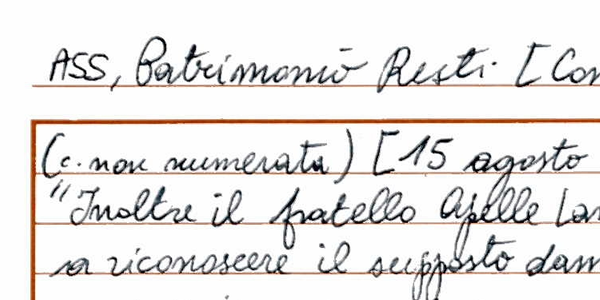 ASS, Patrimonio Resti. [Con
(c. non numerata) [15 agosto
"Inoltre il fratello Apelle Lan
sa riconoscere il supposto dam